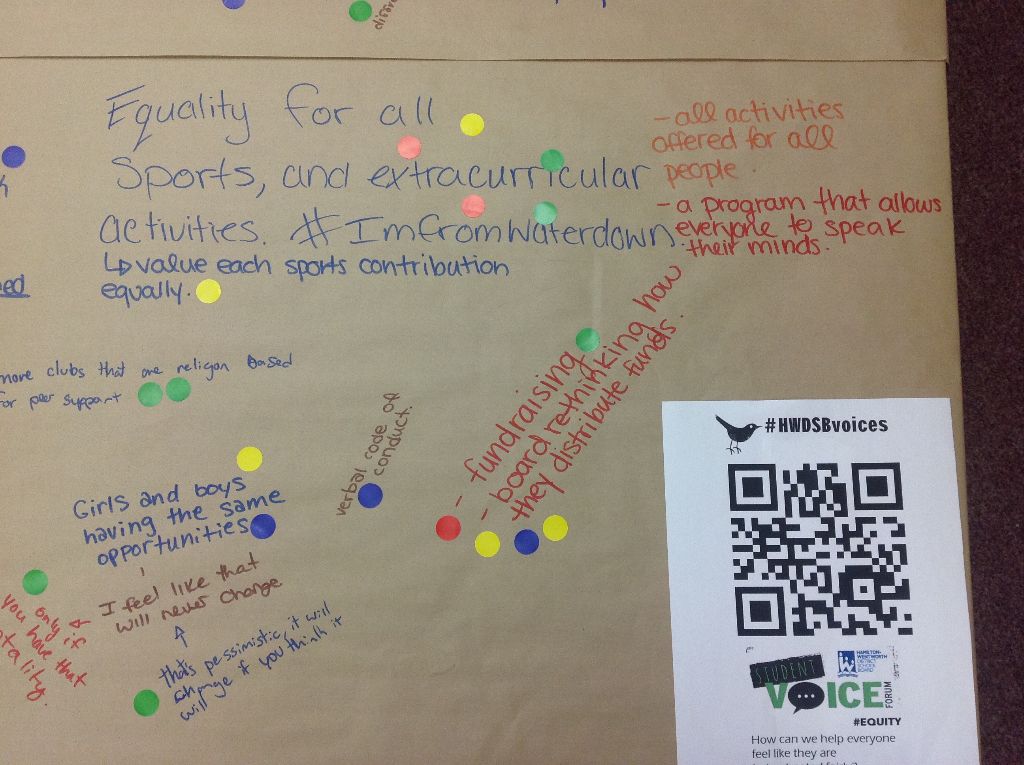 Equality for all
Sports, and extracurricular
activities. #ImfromWaterdown
↳ value each sports contribution
equally.
- all activities
offered for all
people.
- a program that allows
everyone to speak
their minds.
ed
more clubs that are religon based
for peer support
verbal code of
conduct.
- fundraising
- board rethinking how
they distribute funds.
Girls and boys
having the same
opportunities
I feel like that
will never change
only if
you have that
thats pessimistic, it will
change if you think it
will
#HWDSBvoices
STUDENT
VOICE
FORUM
HAMILTON-WENTWORTH
DISTRICT
SCHOOL
BOARD
#EQUITY
How can we help everyone
feel like they are